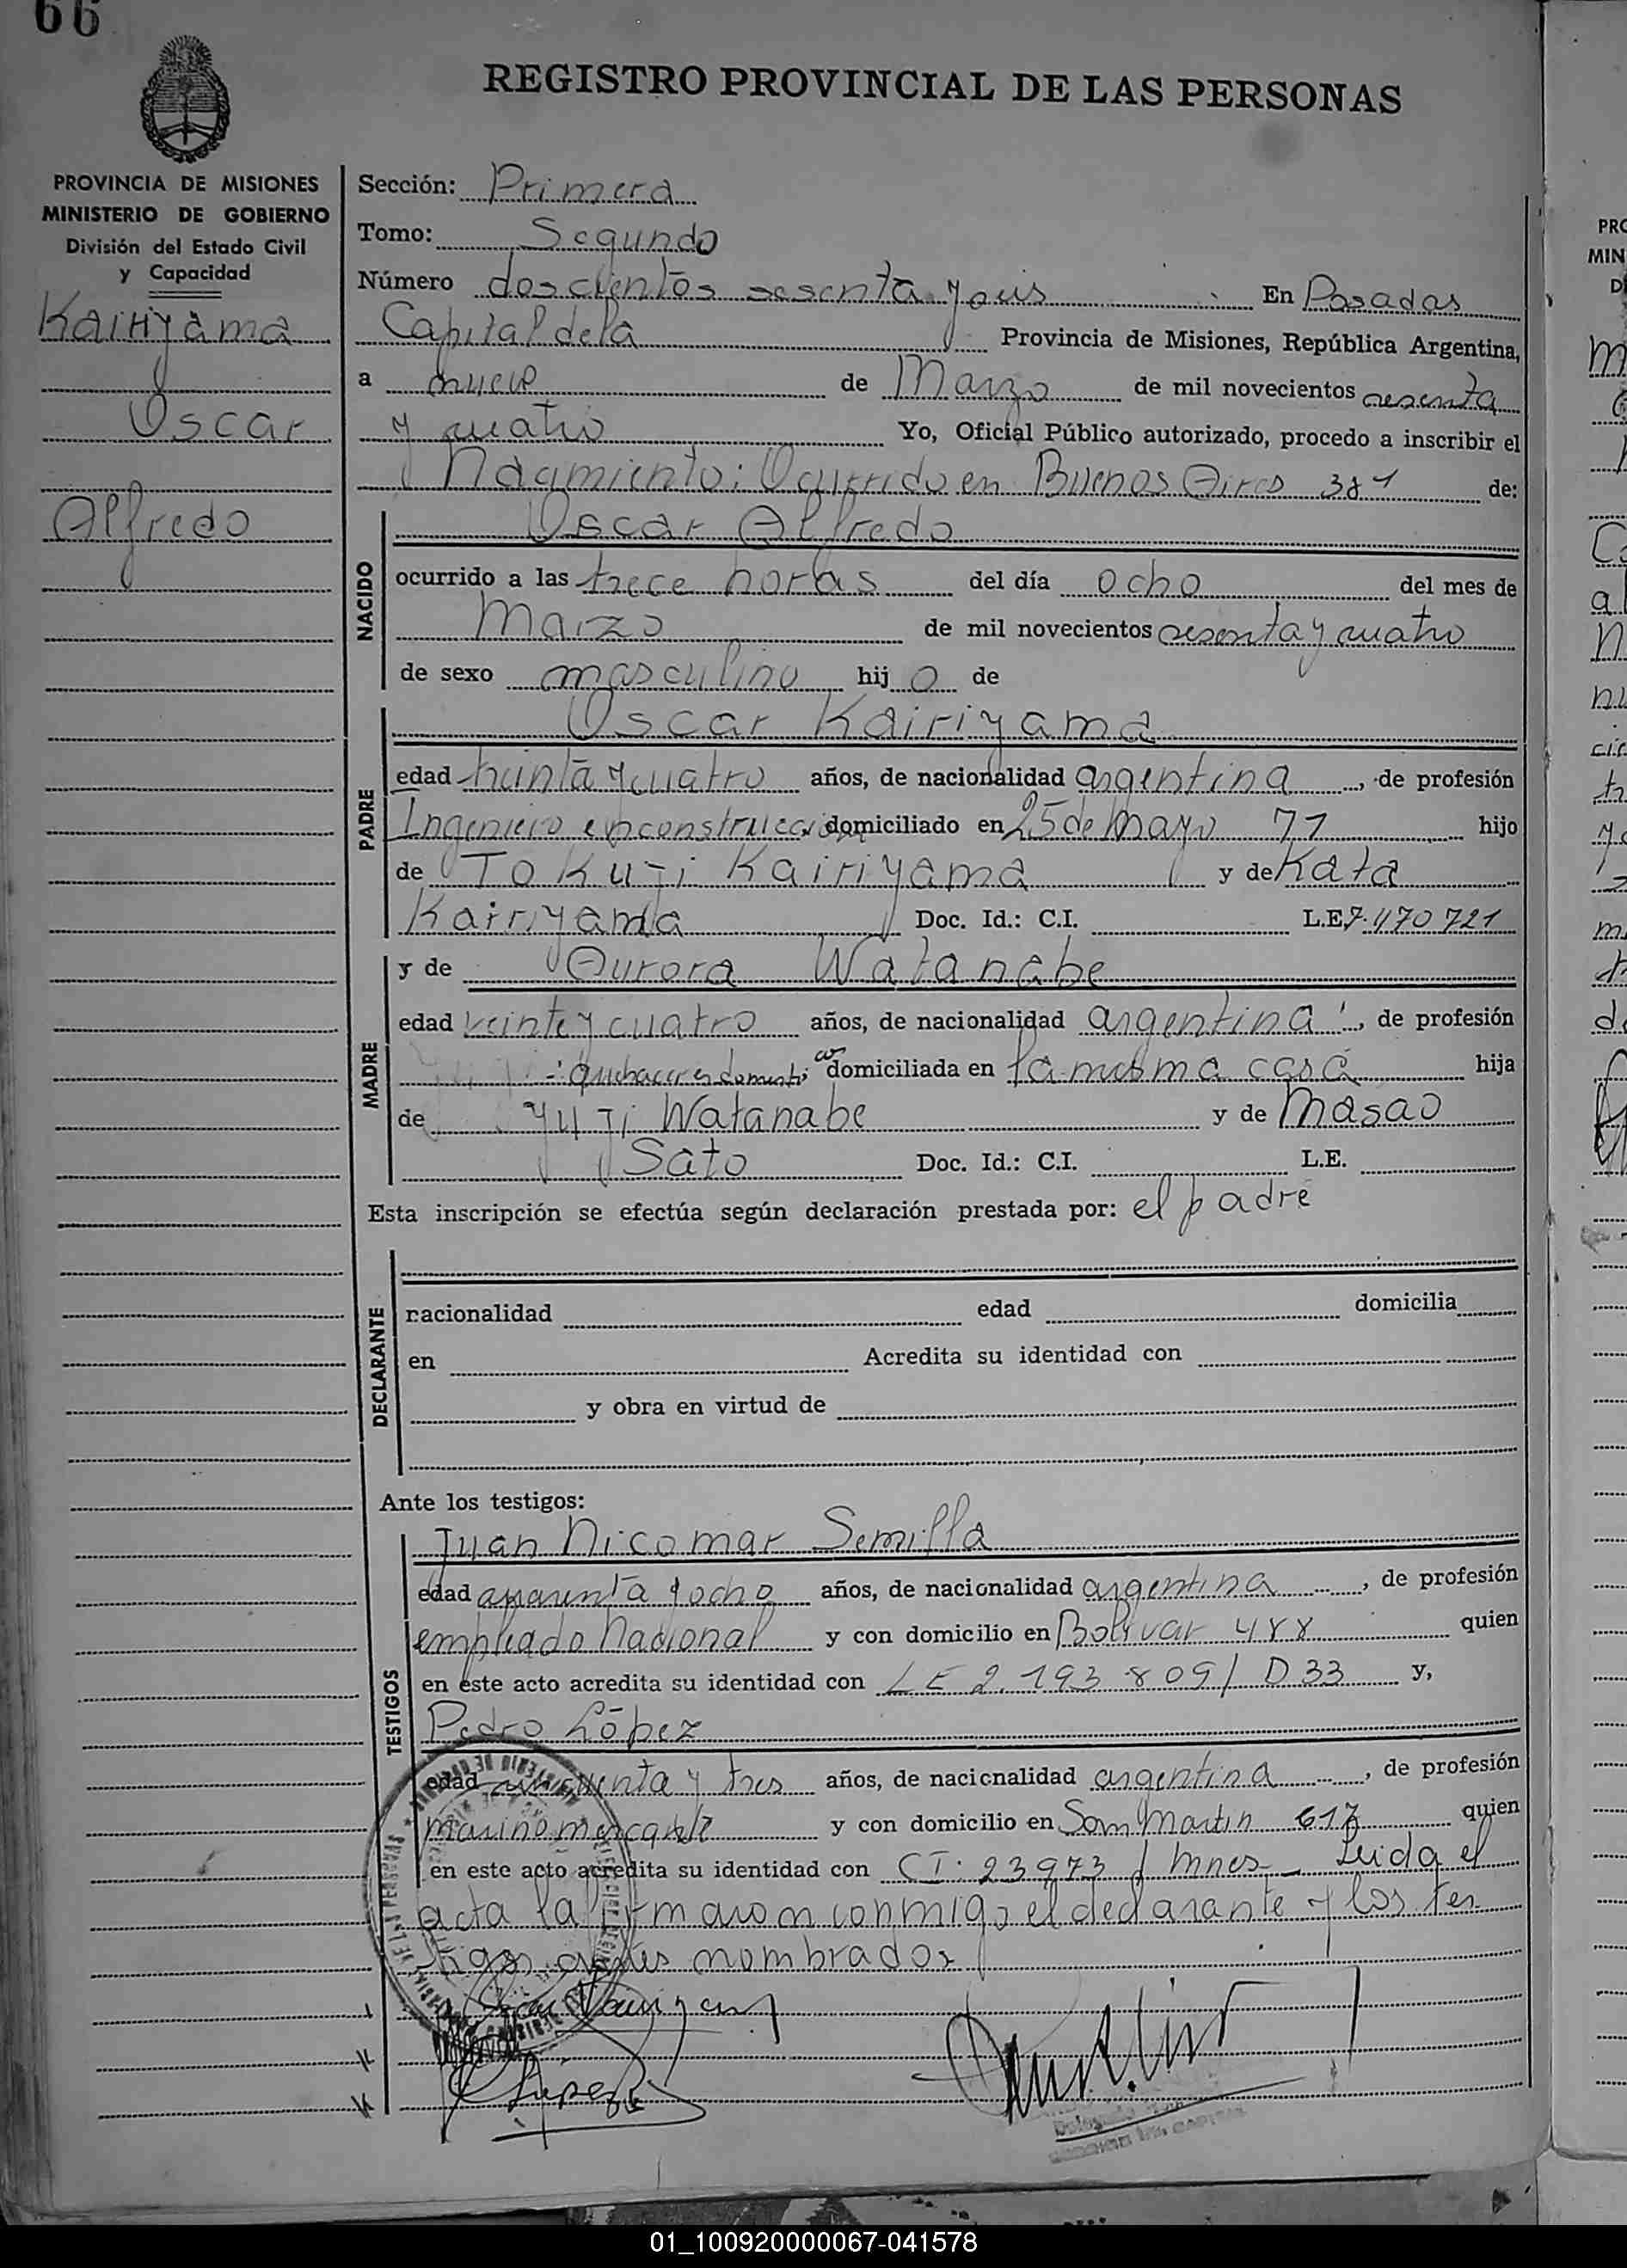 66
REGISTRO PROVINCIAL DE LAS PERSONAS
PROVINCIA DE MISIONES
MINISTERIO DE GOBIERNO
División del Estado Civil
y Capacidad
Kairiyama
Oscar
Alfredo
Sección: Primera
Tomo: Segundo
Número doscientos sesenta y seis En Posadas
Capital de la Provincia de Misiones, República Argentina,
a nueve de Marzo de mil novecientos sesenta
y cuatro Yo, Oficial Público autorizado, procedo a inscribir el
Nacimiento: Ocurrido en Buenos Aires 381 de:
NACIDO
Oscar Alfredo
ocurrido a las trece horas del día ocho del mes de
Marzo de mil novecientos sesenta y cuatro
de sexo masculino hijo de
PADRE
Oscar Kairiyama
edad treinta y cuatro años, de nacionalidad argentina, de profesión
Ingeniero en construccion domiciliado en 25 de Mayo 71 hijo
de Tokuji Kairiyama y de Kata
Kairiyama Doc. Id.: C.I. L.E. 7.470 721
MADRE
y de Aurora Watanabe
edad veinte y cuatro años, de nacionalidad argentina, de profesión
quehaceres domesticos domiciliada en la misma casa hija
de Yuji Watanabe y de Masao
Sato Doc. Id.: C.I. L.E.
Esta inscripción se efectúa según declaración prestada por: el padre
DECLARANTE
nacionalidad edad domicilia
en Acredita su identidad con
y obra en virtud de
Ante los testigos:
TESTIGOS
Juan Nicomar Semilla
edad cuarenta y ocho años, de nacionalidad argentina, de profesión
empleado Nacional y con domicilio en Bolivar 488 quien
en este acto acredita su identidad con LE 2.193 809/ D 33 y,
Pedro López
edad cincuenta y tres años, de nacionalidad argentina, de profesión
marino mercante y con domicilio en San Martin 617 quien
en este acto acredita su identidad con CI: 23973 / Mnes - Leida el
acta la firmaron conmigo el declarante y los tes
tigos antes nombrados
01_100920000067-041578